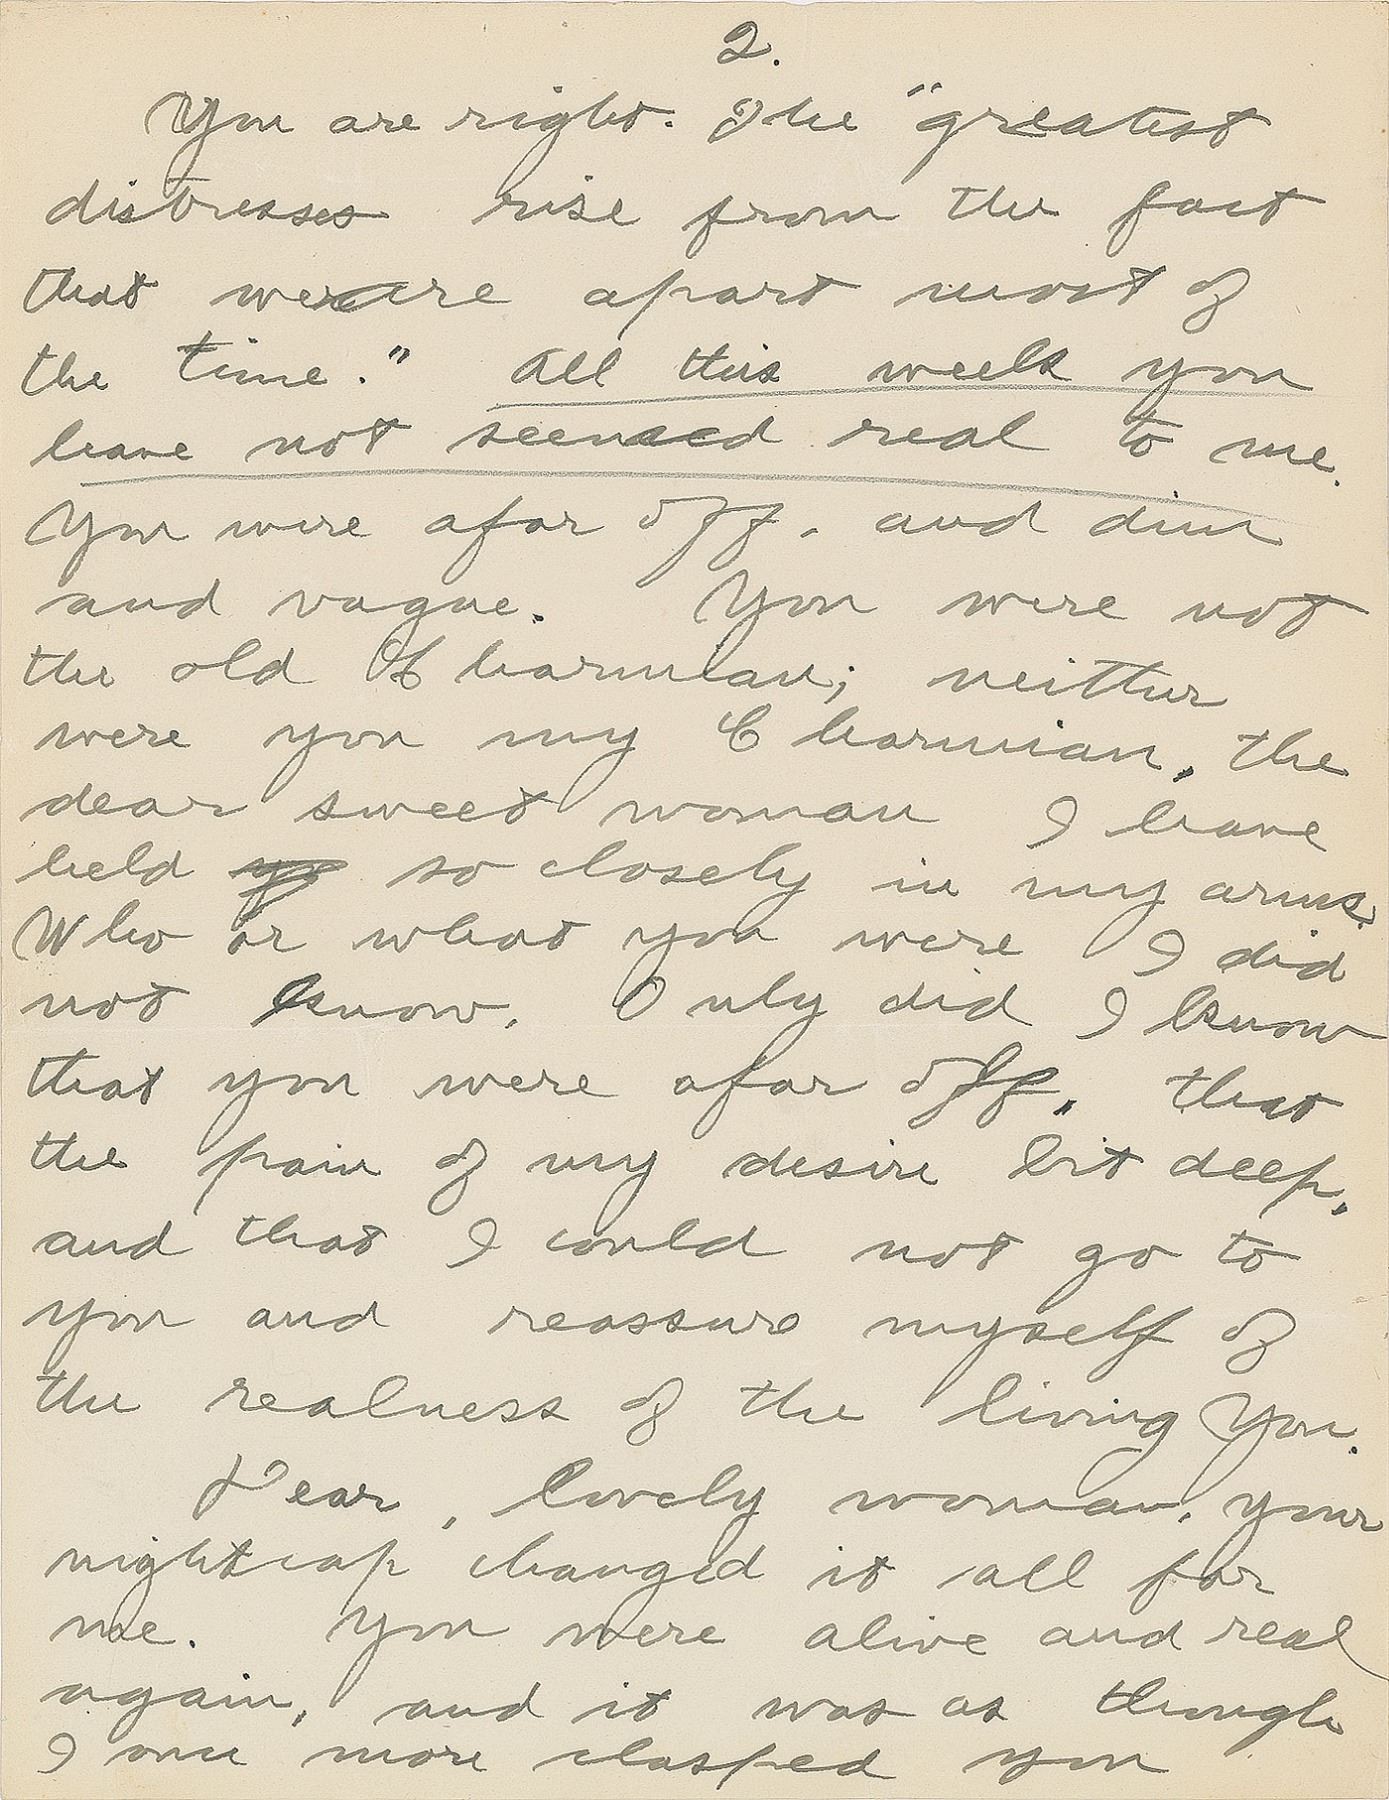 2.
You are right. The "greatest
distresses rise from the fact
that we are apart most of
the time." All this week you
have not seemed real to me.
You were afar off, and dim
and vague. You were not
the old Charmian; neither
were you my Charmian, the
dear sweet woman I have
held so closely in my arms.
Who or what you were I did
not know. Only did I know
that you were afar off, that
the pain of my desire bit deep,
and that I could not go to
you and reassure myself of
the realness of the living You.
Dear, lovely woman, your
nightcap changed it all for
me. You were alive and real
again, and it was as though
I once more clasped you